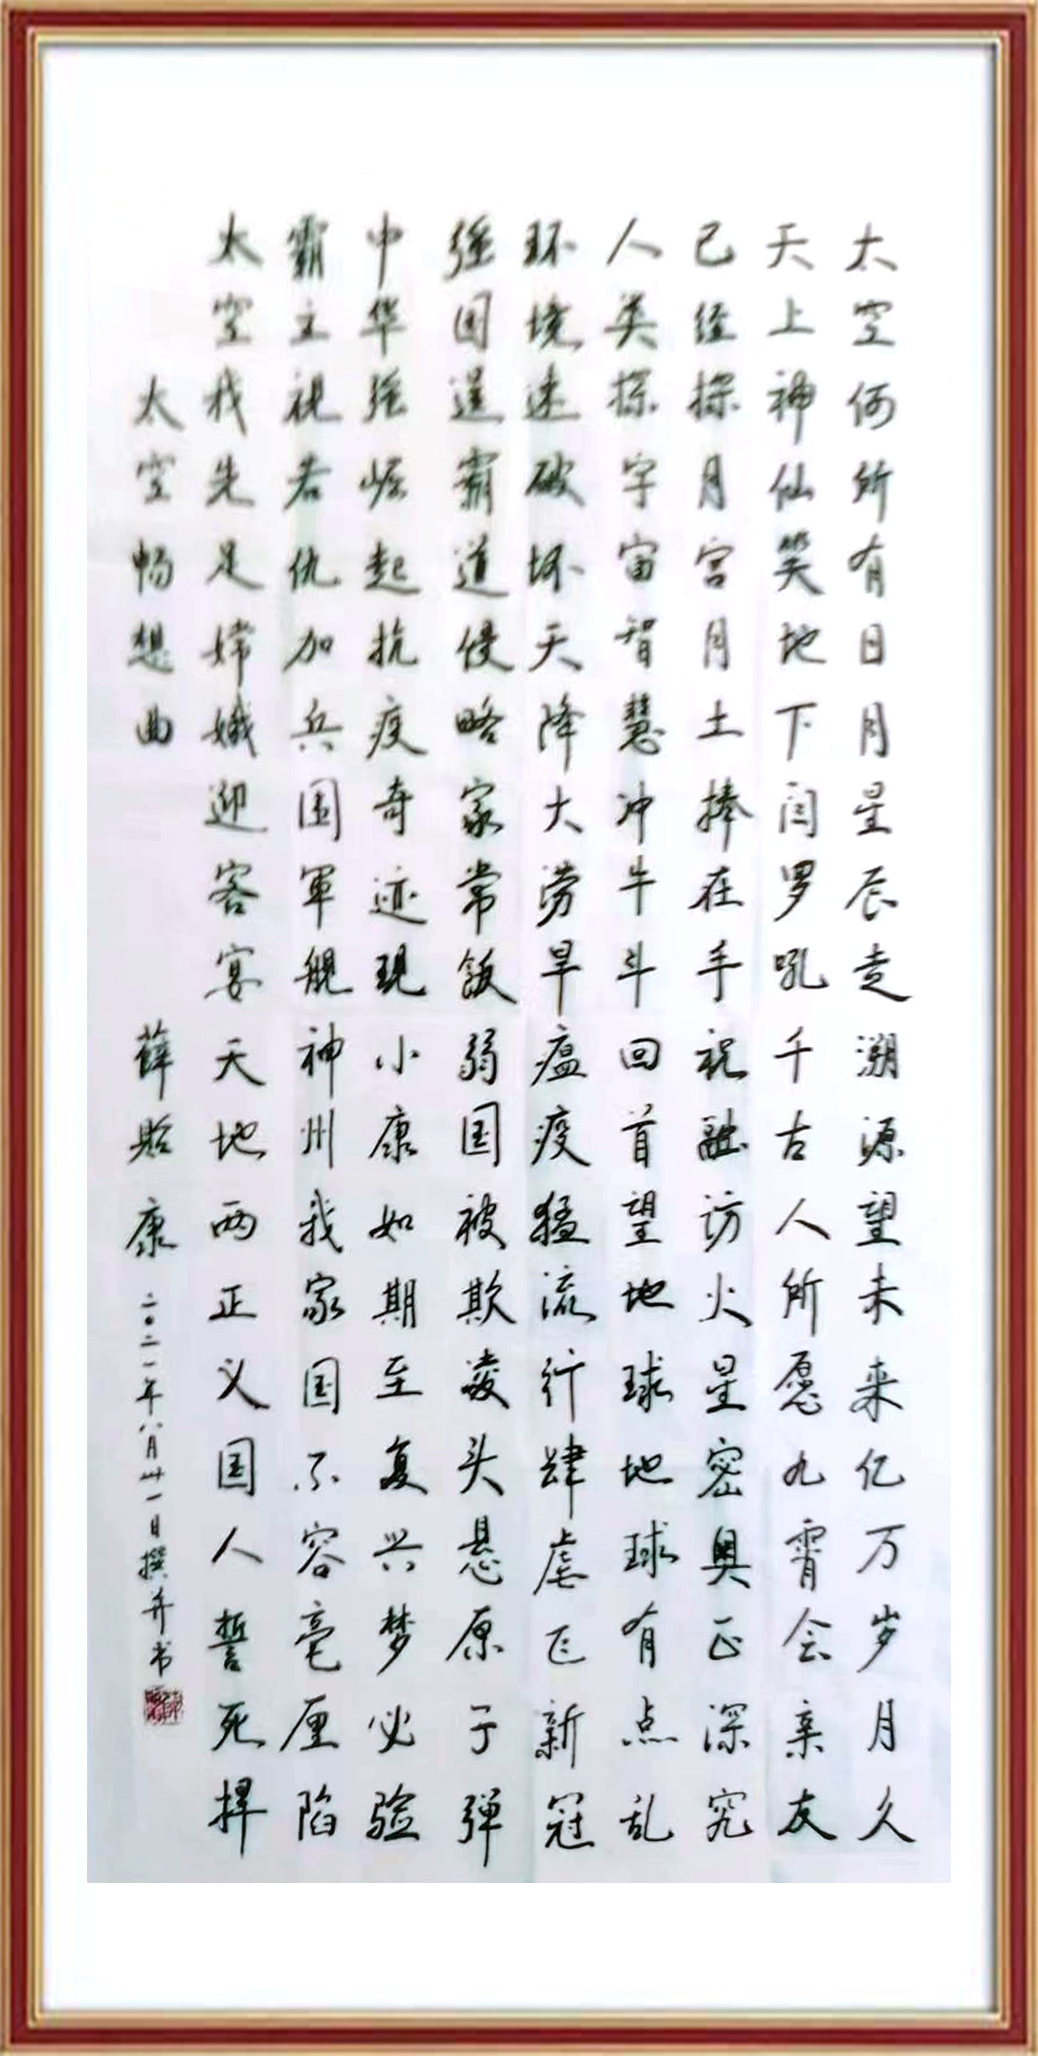 太空何所有日月星辰走溯源望未来亿万岁月久
天上神仙笑地下闫罗吼千古人所愿九霄会亲友
已经探月宫月土捧在手祝融访火星密奥正深究
人类探宇宙智慧冲牛斗回首望地球地球有点乱
环境遭破坏天降大涝旱瘟疫猛流行肆虐是新冠
强国逞霸道侵略家常饭弱国被欺凌头悬原子弹
中华强崛起抗疫奇迹现小康如期至复兴梦必验
霸主视若仇加兵围軍舰神州我家国不容毫厘陷
太空我先足嫦娥迎客宴天地两正义国人誓死捍
太空畅想曲
薛贻康二〇二一年八月卅一日撰并书